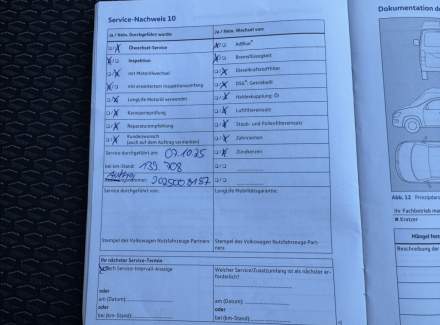 Service-Nachweis 10
Dokumentation d
Ja / Nein. Durchgeführt wurde:
Ja / Nein. Wechsel von:
Ölwechsel-Service
AdBlue
Inspektion
Bremsflüssigkeit
mit Motorölwechsel
Dieselkraftstofffilter
mit erweitertem Inspektionsumfang
DSG: Getriebeöl
LongLife Motoröl verwendet
Haldexkupplung: Öl
Karosserieprüfung
Luftfiltereinsatz
Reparaturempfehlung
Staub- und Pollenfiltereinsatz
Kundenwunsch
(auch auf dem Auftrag vermerken)
Zahnriemen
Service durchgeführt am:
Zündkerzen
bei km-Stand: 139.708
Service durchgeführt von:
LongLife Mobilitätsgarantie:
Stempel des Volkswagen Nutzfahrzeuge Partners
Stempel des Volkswagen Nutzfahrzeuge Part-
ners
Ihr nächster Service-Termin
nach Service-Intervall-Anzeige
Welcher Service/Zusatzumfang ist als nächster er-
forderlich?
oder
am (Datum):
am (Datum):
oder
oder
bei (km-Stand):
bei (km-Stand):
Abb. 12
Ihr Fachbetrieb ma
Kratzer
Mängel fest
Beschreibung der